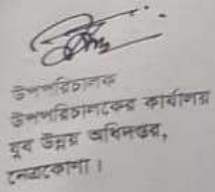 উপপরিচালক
উপপরিচালকের কার্যালয়
যুব উন্নয়ন অধিদপ্তর,
নেত্রকোনা।